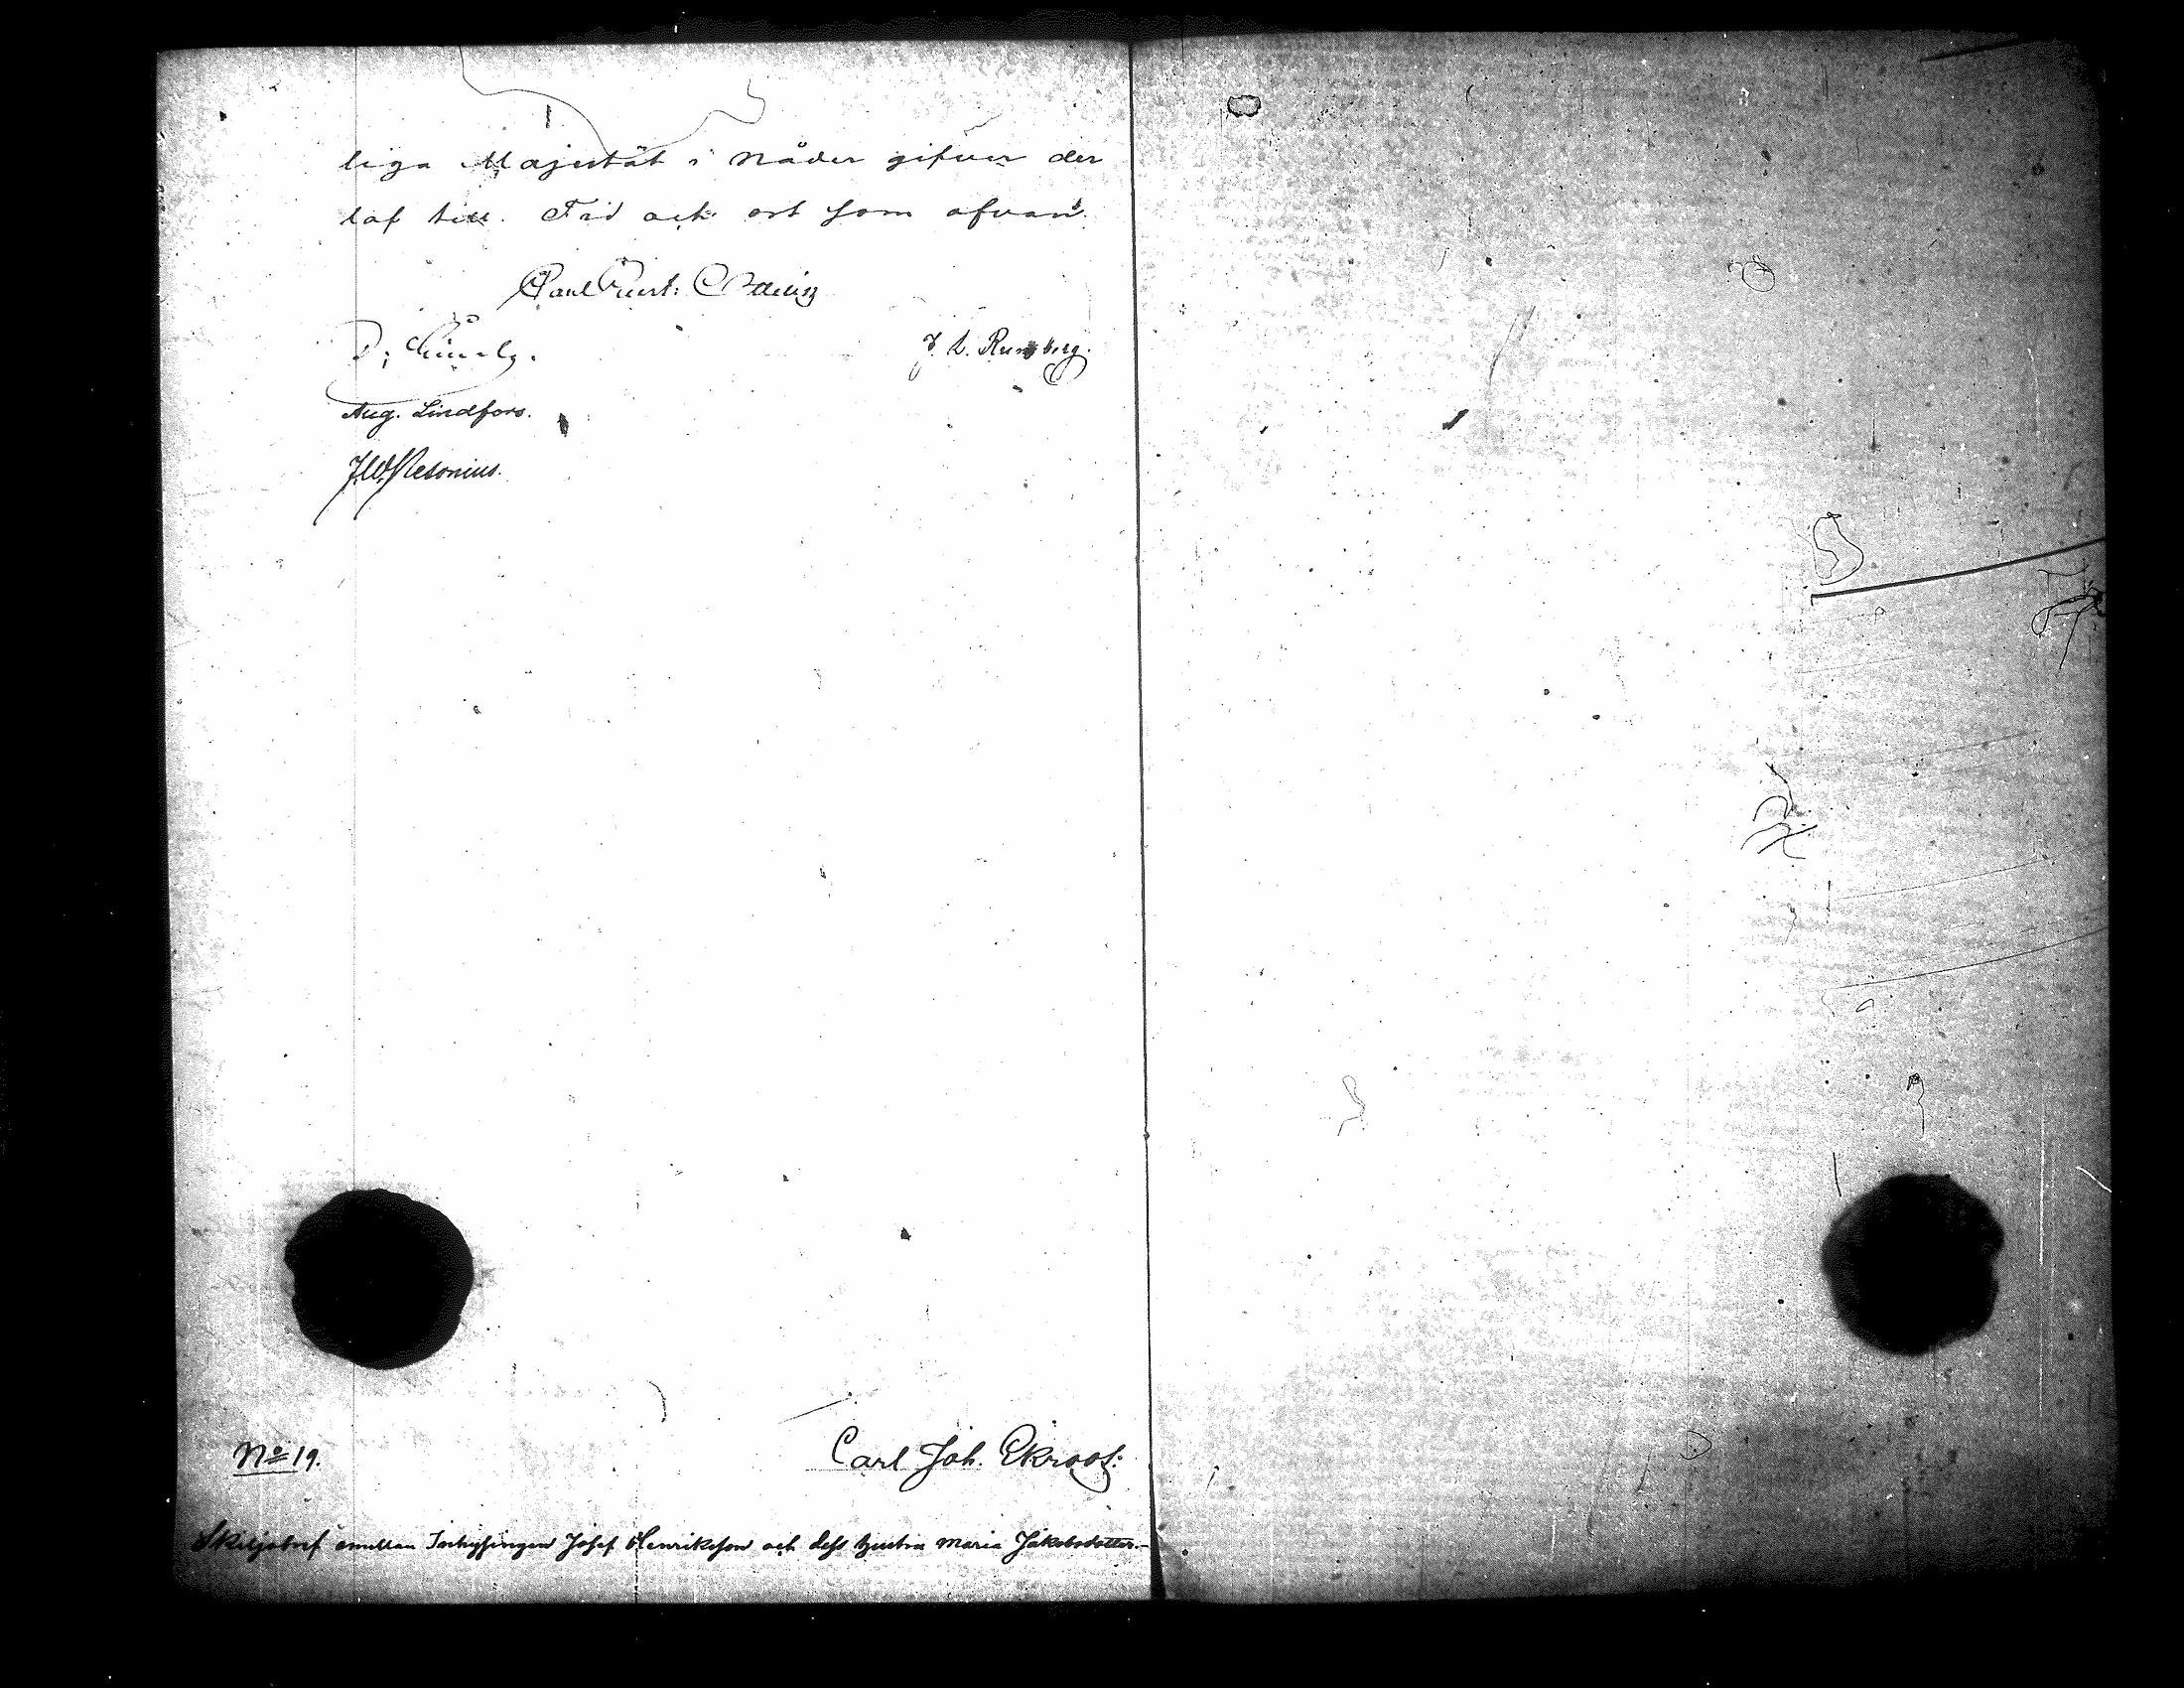 liga Majestät i Nåder gifver der
låf till. Tid och ort som ofvan.
J. L. Runeberg.
Aug. Lindfors.
J. W. Resonius.
No 19.
Carl Joh. Ekroos:
Skiljobref emellan Inhysingen Josef Henriksson och dess hustru Maria Jakobsdotter.